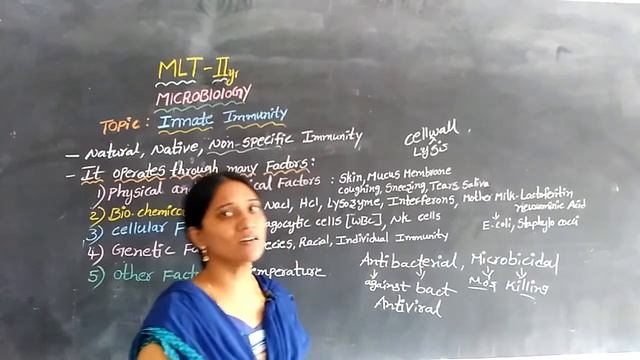 MLT - II yr
MICROBIOLOGY
TOPIC : Innate Immunity
- Natural, Native, Non-specific Immunity
- It operates through many Factors:
1) Physical an ical Factors : Skin, Mucus Membrane
coughing, Sneezing, Tears, Saliva
2) Bio-chemica NaCl, Hcl, Lysozyme, Interferons, Mother Milk-Lactoferitin
neuraminic Acid
3) cellular F agocytic cells [WBC], NK cells
4) Genetic Fa ecies, Racial, Individual Immunity
5) Other Fact emperature
cellwall
Lysis
E-coli, Staphylo cocci
Antibacterial, Microbicidal
against bact M.o's Killing
Antiviral